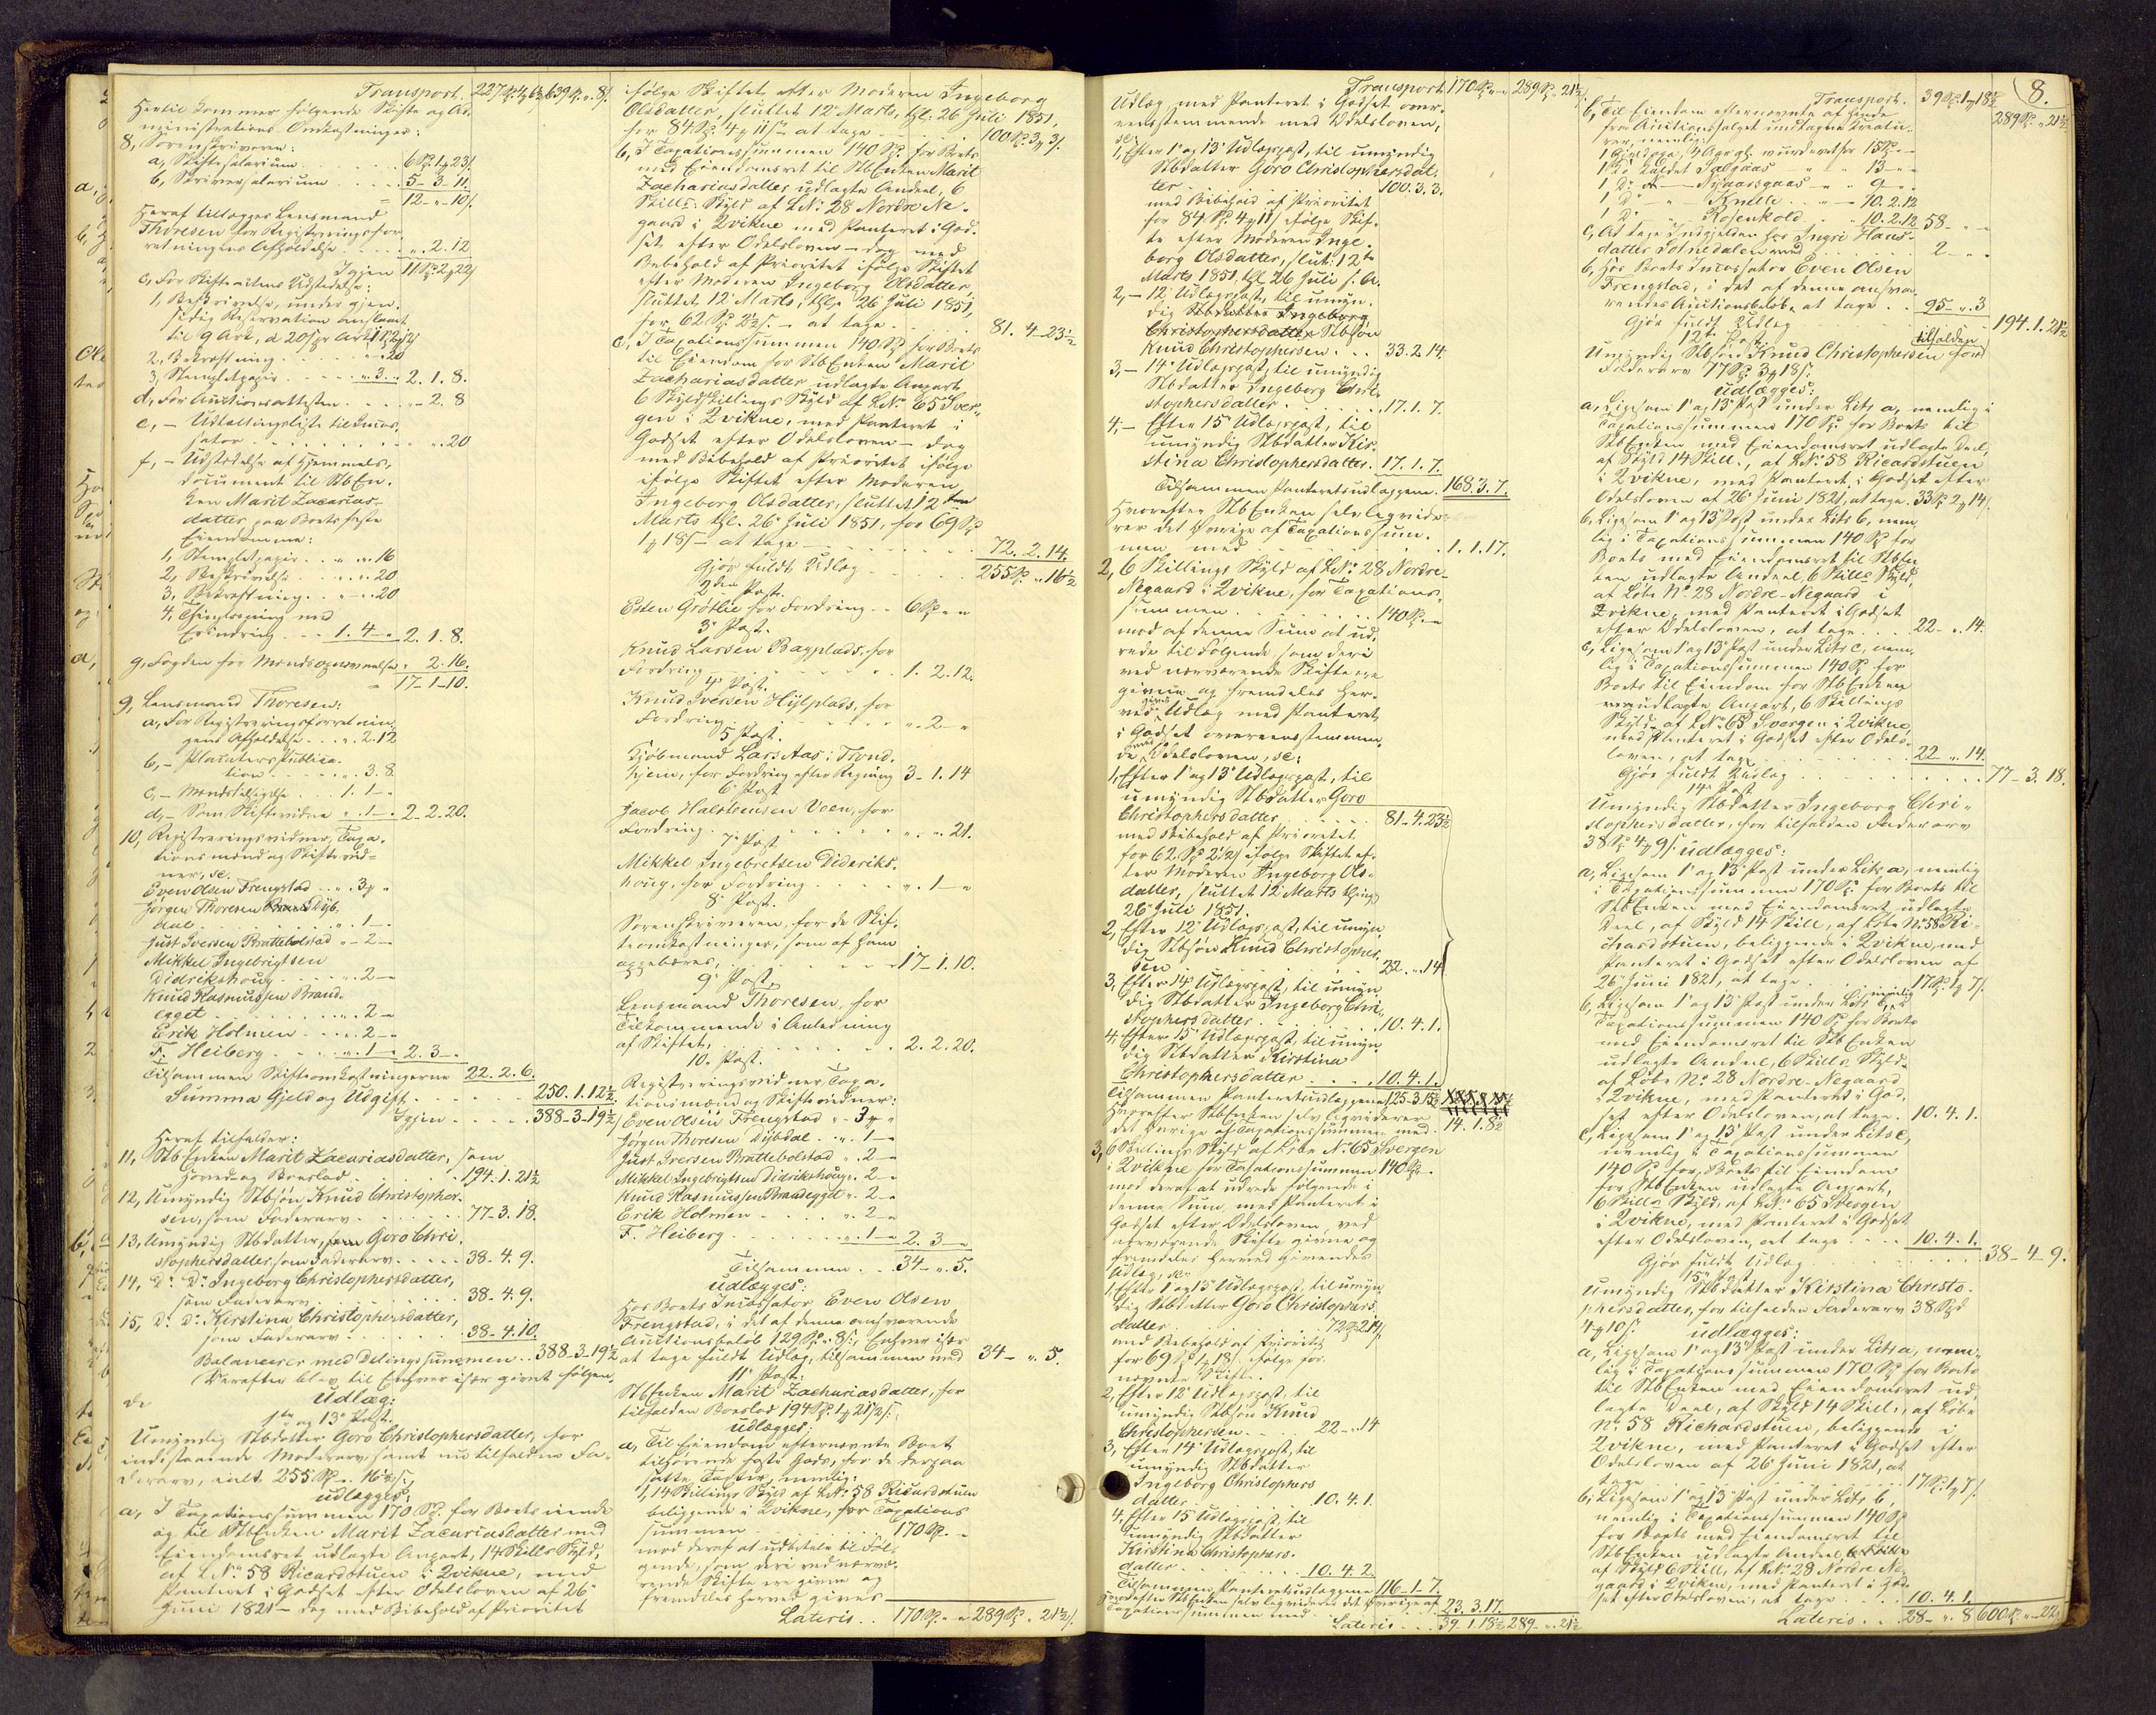 Transport. 227 Sp. 4 6½ 639 Sp. " 8 /.
Hertil kommer følgende Skifte og Ad-
ministrations Omkostninger:
8, Sorenskriveren:
a, Skiftesalarium . . . 6 Sp. 1 23 /.
b, Skriversalarium . . . 5 - 3 - 11.
= 12 - " - 10 /.
Heraf tillægges Lensmand
Thoresen for Registreringsfor-
retningens Afholdelse . . . " . 2. 12
Igjen 11 Sp. 2 22 /.
c, For Skifteactens Udstedelse:
1, Beskrivelse, under gjen-
sidig Reservation anslaaet
til 9 Ark, a 20 / pr Ark
2, Bekræftning . . . " . 20
3, Stemplet papir . . . " 3 . " 2. 1. 8.
d, For Auctionsattesten . . . " - 2. 8
e, - Udtællingsliste til Incas-
sator . . . " . 20
f, - Udstedelse af Hjemmels-
document til StbEn-
ken Marit Zacarias-
datter paa Boets faste
Eiendomme:
1, Stemplet papir . . " " . 16
2, Beskrivelse . . . " . 20
3, Bekræftning . . " - " . 20
4, Thinglæsning med
Erindring . . . 1. 4 - " 2. 1. 8.
g, Fogden for Mandsopnævnelse " 2. 16.
= 17 - 1 - 10.
9, Lensmand Thoresen:
a, For Registreringsforretnin-
gens Afholdelse . . . " . 2. 12
b, - Placaters Publica-
tion . . . " . 3. 8
c, - Mandstilsigelse . . . 1. 1 - "
d, - Som Skiftevidne " . 1 - " 2 - 2. 20.
10, Registreringsvidner, Taxa-
tionsmænd og Skiftevid-
ner, sc.
Even Olsen Frengstad . . " . 3 "
Jørgen Thoresen Dyb-
dal . . . " . 1 - "
Just Iversen Brattebolstad " - 2 - "
Mikkel Ingebrigtsen
Didrikshoug . . . " . 2 - "
Knud Rasmussen Brand-
egget . . . " . 2 - "
Erik Holmen . . . " . 2 - "
F. Heiberg . . . " . 1 - " 2. 3 - "
Tilsammen Skifteomkostningerne 22. 2. 6.
Summa Gjeld og Udgift . . . 250. 1. 12½
Igjen . . . 388 - 3 - 19½
Heraf tilfalder:
11, StbEnken Marit Zacariasdatter, som
Hovedog Boeslod . . . 194. 1. 21½
12, Umyndig Stbsøn Knud Christopher-
sen, som Faderarv . . . 77 - 3. 18.
13, Umyndig Stbdatter, Goro Chri-
stophersdatter, som Faderarv . . . 38. 4. 9.
14, D° D° Ingeborg Christophersdatter,
som Faderarv . . . 38. 4. 9.
15, D° D° Kirstina Christophersdatter,
som Faderarv . . . 38 - 4. 10.
Balancerer med Delingssummen . . 388 - 3 - 19½
Derefter blev til Enhver især gjort følgen-
de Udlæg:
1ste og 13de Post.
Umyndig Stbdatter Goro Christophersdatter, for
indestaaende Moderarv samt nu tilfalden Fa-
derarv, ialt 255 Sp. " 16½ /.
udlægges:
a, I Taxationssummen 170 Sp. for Boets eiende
og til StbEnken Marit Zacariasdatter med
Eiendomsret udlagte Anpart, 14 Skills Skyld,
af L.N° 58 Ricardstuen i Qvikne, med
Panteret i Godset efter Odelsloven af 26de
Juni 1821 - dog med Bibehold af Prioritet
ifølge Skiftet efter Moderen Ingeborg
Olsdatter, sluttet 12te Marts, thgl. 26 Juli 1851,
for 84 Sp. 4 11 / - at tage . . . 100 Sp. 3 3 /.
b, I Taxationssummen 140 Sp. for Boets
med Eiendomsret til StbEnken Marit
Zachariasdatter udlagte Andeel, 6
Skills: Skyld af L.N° 28 Nordre Ne-
gaard i Qvikne med Panteret i God-
set efter Odelsloven - dog med
Bebehold af Prioritet ifølge Skiftet
efter Moderen Ingeborg Olsdatter
sluttet 12 Marts, thgl. 26 Juli 1851,
for 62 Sp. 2½ /. - at tage . . . 81. 4 - 23½
c, I Taxationssummen 140 Sp. for Boets
til Eiendom for StbEnken Marit
Zachariasdatter udlagte Anpart
6 Skyldskillings Skyld af L.N° 65 Sver-
gen i Qvikne, med Panteret i
Godset efter Odelsloven - dog
med Bibehold af Prioritet ifølge
ifølge Skiftet efter Moderen
Ingeborg Olsdatter, sluttet 12te
Marts thgl. 26 Juli 1851, for 69 Sp.
1 18 / - at tage . . . 72. 2. 14.
Gjør fuldt Udlæg . . . 255 Sp. " 16½
2den Post.
Esten Grøtlie for Fordring . . 6 Sp. " "
3die Post.
Knud Larsen Bagplads, for
Fordring . . . 1. 2. 12.
4de Post.
Knud Iversen Hylplads, for
Fordring . . . " . 2 - "
5 Post.
Kjøbmand Lars Aas i Trond-
hjem, for Fordring efter Regning 3 - 1. 14
6 Post
Jacob Halstensen Voen, for
Fordring . . . " . " . 21.
7 Post
Mikkel Ingebretsen Dideriks-
houg, for Fordring . . . " . 1 - "
8 Post.
Sorenskriveren, for de Skif-
teomkostninger, som af ham
oppebæres, . . . 17 - 1. 10.
9 Post
Lensmand Thoresen, for
Tilkommende i Anledning
af Skiftet, . . . 2. 2. 20.
10. Post.
Registreringsvidner, Taxa-
tionsmænd og Skiftevidner:
Even Olsen Frengstad " - 3 "
Jørgen Thoresen Dybdal . . " . 1 - "
Just Iversen Brattebolstad " . 2 - "
Mikkel Ingebrigtsen Didrikshoug " . 2 - "
Knud Rasmussen Brandegget " . 2 - "
Erik Holmen . . . " . 2 - "
F. Heiberg . . . " . 1 - " 2. 3 - "
Tilsammen . . 34 - " . 5.
udlægges:
Hos Boets Incassator Even Olsen
Frengstad, i det af denne ansvarende
Auctionsbeløb 129 Sp. " 8 /., Enhver især
at tage fuldt Udlæg, tilsammen med 34 - " . 5.
11 Post.
StbEnken Marit Zachariasdatter, for
tilfalden Boeslod 194 Sp. 1 21½ /.
udlægges:
a, Til Eiendom efternævnte Boet
tilhørende faste Gods, for de derpaa
satte Taxter, nemlig:
1, 14 Skillings Skyld af L.N° 58 Ricardstuen
beliggende i Qvikne, for Taxations
summen . . . 170 Sp. - "
mod deraf at udbetale til Føl-
gende, som deri ved nærvæ-
rende Skifte ere givne og
fremdeles herved gives
Lateris . . 170 Sp. " " 289 Sp. " 21½ /.
Transport 170 Sp. " " 289 Sp. " 21½ /.
Udlæg med Panteret i Godset over-
eensstemmende med Odelsloven,
sc:
1, Efter 1 og 13 Udlægspost, til umyndig
Stbdatter Goro Christophersdat-
ter . . . 100. 3. 3.
med Bibehold af Prioritet
for 84 Sp. 4 11 / ifølge Skif-
te efter Moderen Inge-
borg Olsdatter, slut: 12te
Marts 1851, thgl 26 Juli s. A.
2, - 12 Udlægspost, til umyn-
dig Stbdatter Ingeborg
Christophersdatter Stbsøn
Knud Christophersen . . . 33. 2. 14.
3, - 14 Udlægspost, til umyndig
Stbdatter Ingeborg Chri-
stophersdatter . . . 17. 1. 7.
4, - Efter 15 Udlægspost, til
umyndig Stbdatter Kir-
stina Christophersdatter . 17. 1. 7.
Tilsammen Panteretsudlæggene . 168. 3. 7.
Hvorefter StbEnken selv liqvide-
rer det Øvrige af Taxationssum-
men med . . . 1. 1. 17.
2, 6 Skillings Skyld af L.N° 28 Nordre-
Negaard i Qvikne, for Taxations-
summen . . . 140 Sp. - "
mod af denne Sum at ud-
rede til Følgende som deri
ved nærværende Skifte ere
givne og fremdeles her-
ved gives Udlæg med Panteret
i Godset overeensstemmen-
de med Odelsloven, sc:
1, Efter 1 og 13 Udlægspost, til
umyndig Stbdatter Goro
Christophersdatter . . . 81 - 4. 23½
med Bibehold af Prioritet
for 62 Sp. 2½ / ifølge Skiftet ef-
ter Moderen Ingeborg Ols-
datter, sluttet 12 Marts
26 Juli 1851.
2, Efter 12 Udlægspost, til umyn-
dig Stbsøn Knud Christopher-
sen . . . 22. " . 14
3, Efter 14 Udlægspost, til umyn-
dig Stbdatter Ingeborg Chri-
stophersdatter . . . 10. 4. 1.
4, Efter 15 Udlægspost, til umyn-
dig Stbdatter Kirstina
Christophersdatter . . . 10. 4. 1.
Tilsammen Panteretsudlæggene 125 - 3. 15½
Hvorefter StbEnken selv liqviderer
det Øvrige af Taxationssummen med . 14. 1. 8½
3, 6 Skillings Skyld af Løbe N° 65 Svergen
i Qvikne for Taxationssummen 140 Sp. -
mod deraf at udrede følgende i
denne Sum, med Panteret i
Godset efter Odelsloven, ved
nærværende Skifte givne og
fremdeles herved givendes
Udlæg, sc:
1, Efter 1 og 13 Udlægspost, til umyn-
dig Stbdatter Goro Christophers-
datter . . . 72 Sp. 2 14 /.
med Bebehold af Prioritet
for 69 Sp. 1 18 / ifølge for-
nævnte Skifte.
2, Efter 12 Udlægspost, til
umyndig Stbsøn Knud
Christophersen . . . 22 - " . 14
3, Efter 14 Udlægspost, til
umyndig Stbdatter
Ingeborg Christophers
datter . . . 10. 4. 1.
4, Efter 15 Udlægspost, til
umyndig Stbdatter
Kirstina Christophers-
datter . . . 10. 4. 2.
Tilsammen Panteretsudlæggene 116 - 1 - 7.
hvorefter StbEnken selv liqviderer det Øvrige af
Taxationssummen med . . . 23. 3. 17.
Lateris . . . 39 - 1. 18½ 289 - " . 21½
8.
Transport . 39 Sp. 1 18½ 289 Sp. " 21½
b, Til Eiendom efternævnte af hende
fra Auctionssalget undtagne Creatu-
rer, nemlig:
1 vurderet for 15 Sp. " -
1 D° kaldet Dalgaas " " 13 - " "
1 D° - " - Nyaarsgaas - " " 9 - " "
1 D° - " - Knelle . . " - 10. 2. 12
1 D° " Rosenkold . . " 10. 2. 12 58 - " "
c, At tage Indgjelden hos Ingri Hans-
datter Solnedalen med . . . 2 - " "
b, Hos Boets Incassator Even Olsen
Frengstad, i det af denne ansva-
rendes Auctionsbeløb, at tage . . 95 - " . 3
Gjør fuldt Udlæg . . . 194. 1. 21½
12te Post.
Umyndig Stbsøn Knud Christophersen for tilfalden
Faderarv 77 Sp. 3 18 /:
udlægges:
a, Ligesom 1 og 13 Post under Litr a, nemlig i
Taxationssummen 170 Sp. for Boets til
StbEnken med Eiendomsret udlagte Deel,
af Skyld 14 Skill., af L.N° 58 Ricardstuen
i Qvikne, med Panteret i Godset efter
Odelsloven af 26 Juni 1821, at tage . 33 Sp. 2 14 /.
b, Ligesom 1 og 13 Post under Litr b, nem-
lig i Taxationssummen 140 Sp. for
Boets med Eiendomsret til StbEn-
ken udlagte Andeel, 6 Skills Skyld,
af Løbe N° 28 Nordre-Negaard i
Qvikne, med Panteret i Godset
efter Odelsloven, at tage . . . 22 - " . 14.
c, Ligesom 1 og 13 Post under Litr c, nem-
lig i Taxationssummen 140 Sp. for
Boets til Eiendom for StbEnken
udlagte Anpart, 6 Skillings
Skyld, af L.N° 65 Svergen i Qvikne,
med Panteret i Godset efter Odels-
loven, at tage . . . 22 - " . 14.
Gjør fuldt Udlæg . . . 77 - 3. 18.
14 Post
Umyndig Stbdatter Ingeborg Chri-
stophersdatter, for tilfalden Faderarv
38 Sp. 4 9 /: udlægges:
a, Ligesom 1 og 13 Post under Litr a, nemlig
i Taxationssummen 170 Sp. for Boets til
StbEnken med Eiendomsret udlagte
Deel, af Skyld 14 Skill, af Løbe N° 58 Ri-
chardstuen, beliggende i Qvikne, med
Panteret i Godset efter Odelsloven af
26 Juni 1821, at tage . . . 17 Sp. 1 7 /.
b, Ligesom 1 og 13 Post under Litr b, nemlig i
Taxationssummen 140 Sp. for Boets
med Eiendomsret til StbEnken
udlagte Andeel, 6 Skills Skyld
af Løbe N° 28 Nordre-Negaard
i Qvikne, med Panteret i God-
set efter Odelsloven, at tage . 10. 4. 1.
c, Ligesom 1 og 13 Post under Litr c,
nemlig i Taxationssummen
140 Sp. for Boets til Eiendom
for StbEnken udlagte Anpart,
6 Skills Skyld, af L.N° 65 Svergen
i Qvikne, med Panteret i Godset
efter Odelsloven, at tage . . . 10. 4. 1.
Gjør fuldt Udlæg . . . 38 - 4 - 9.
15 Post
Umyndig Stbdatter Kirstina Christo-
phersdatter, for tilfalden Faderarv 38 Spd
4 10 /: udlægges:
a, Ligesom 1 og 13 Post under Litr a, nem-
lig i Taxationssummen 170 Sp. for Boets
til StbEnken med Eiendomsret ud-
lagte Deel, af Skyld 14 Skill:, af Løbe
N° 58 Richardstuen, beliggende i
Qvikne, med Panteret i Godset efter
Odelsloven af 26 Juni 1821, at
tage . . . 17 Sp. 1 7 /.
b, Ligesom 1 og 13 Post under Litr b,
nemlig i Taxationssummen 140 Sp.
for Boets med Eiendomsret til
StbEnken udlagte Andeel,
af Skyld 6 Skill, af L.N° 28 Nordre Ne-
gaard i Qvikne, med Panteret i God-
set efter Odelsloven, at tage . . . 10. 4. 1.
Lateris . . . 28 - " . 8 600 Sp. " - 22.